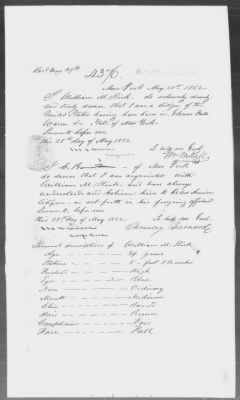 4376
New York May 28th 1852
I William M. do solemnly
and truly swear that I am a citizen of the
United States having been born in Glenns Falls
Warren Co. State of New York.
Sworn to before me
this 28th day of May 1852
So help me God
Wm M.
I C. of New York
do swear that I am acquainted with
William M. and have always
understood and believe him to be an American
Citizen as set forth in his foregoing affidavit
Sworn to before me
this 28th day of May 1852
So help me God
Personal description of William M.
Age 24 years
Stature 5 feet inches
Forehead High
Eyes Blue
Nose Ordinary
Mouth Medium
Chin Round
Hair Brown
Complexion Fair
Face Full